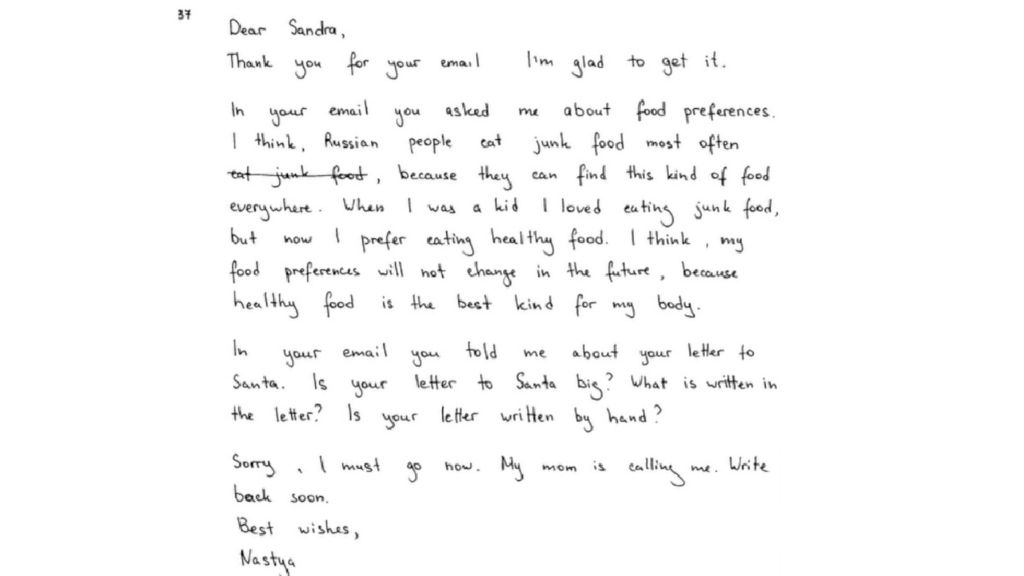 37
Dear Sandra,
Thank you for your email I'm glad to get it.
In your email you asked me about food preferences.
I think, Russian people eat junk food most often
eat junk food, because they can find this kind of food
everywhere. When I was a kid I loved eating junk food,
but now I prefer eating healthy food. I think, my
food preferences will not change in the future, because
healthy food is the best kind for my body.
In your email you told me about your letter to
Santa. Is your letter to Santa big? What is written in
the letter? Is your letter written by hand?
Sorry, I must go now. My mom is calling me. Write
back soon.
Best wishes,
Nastya